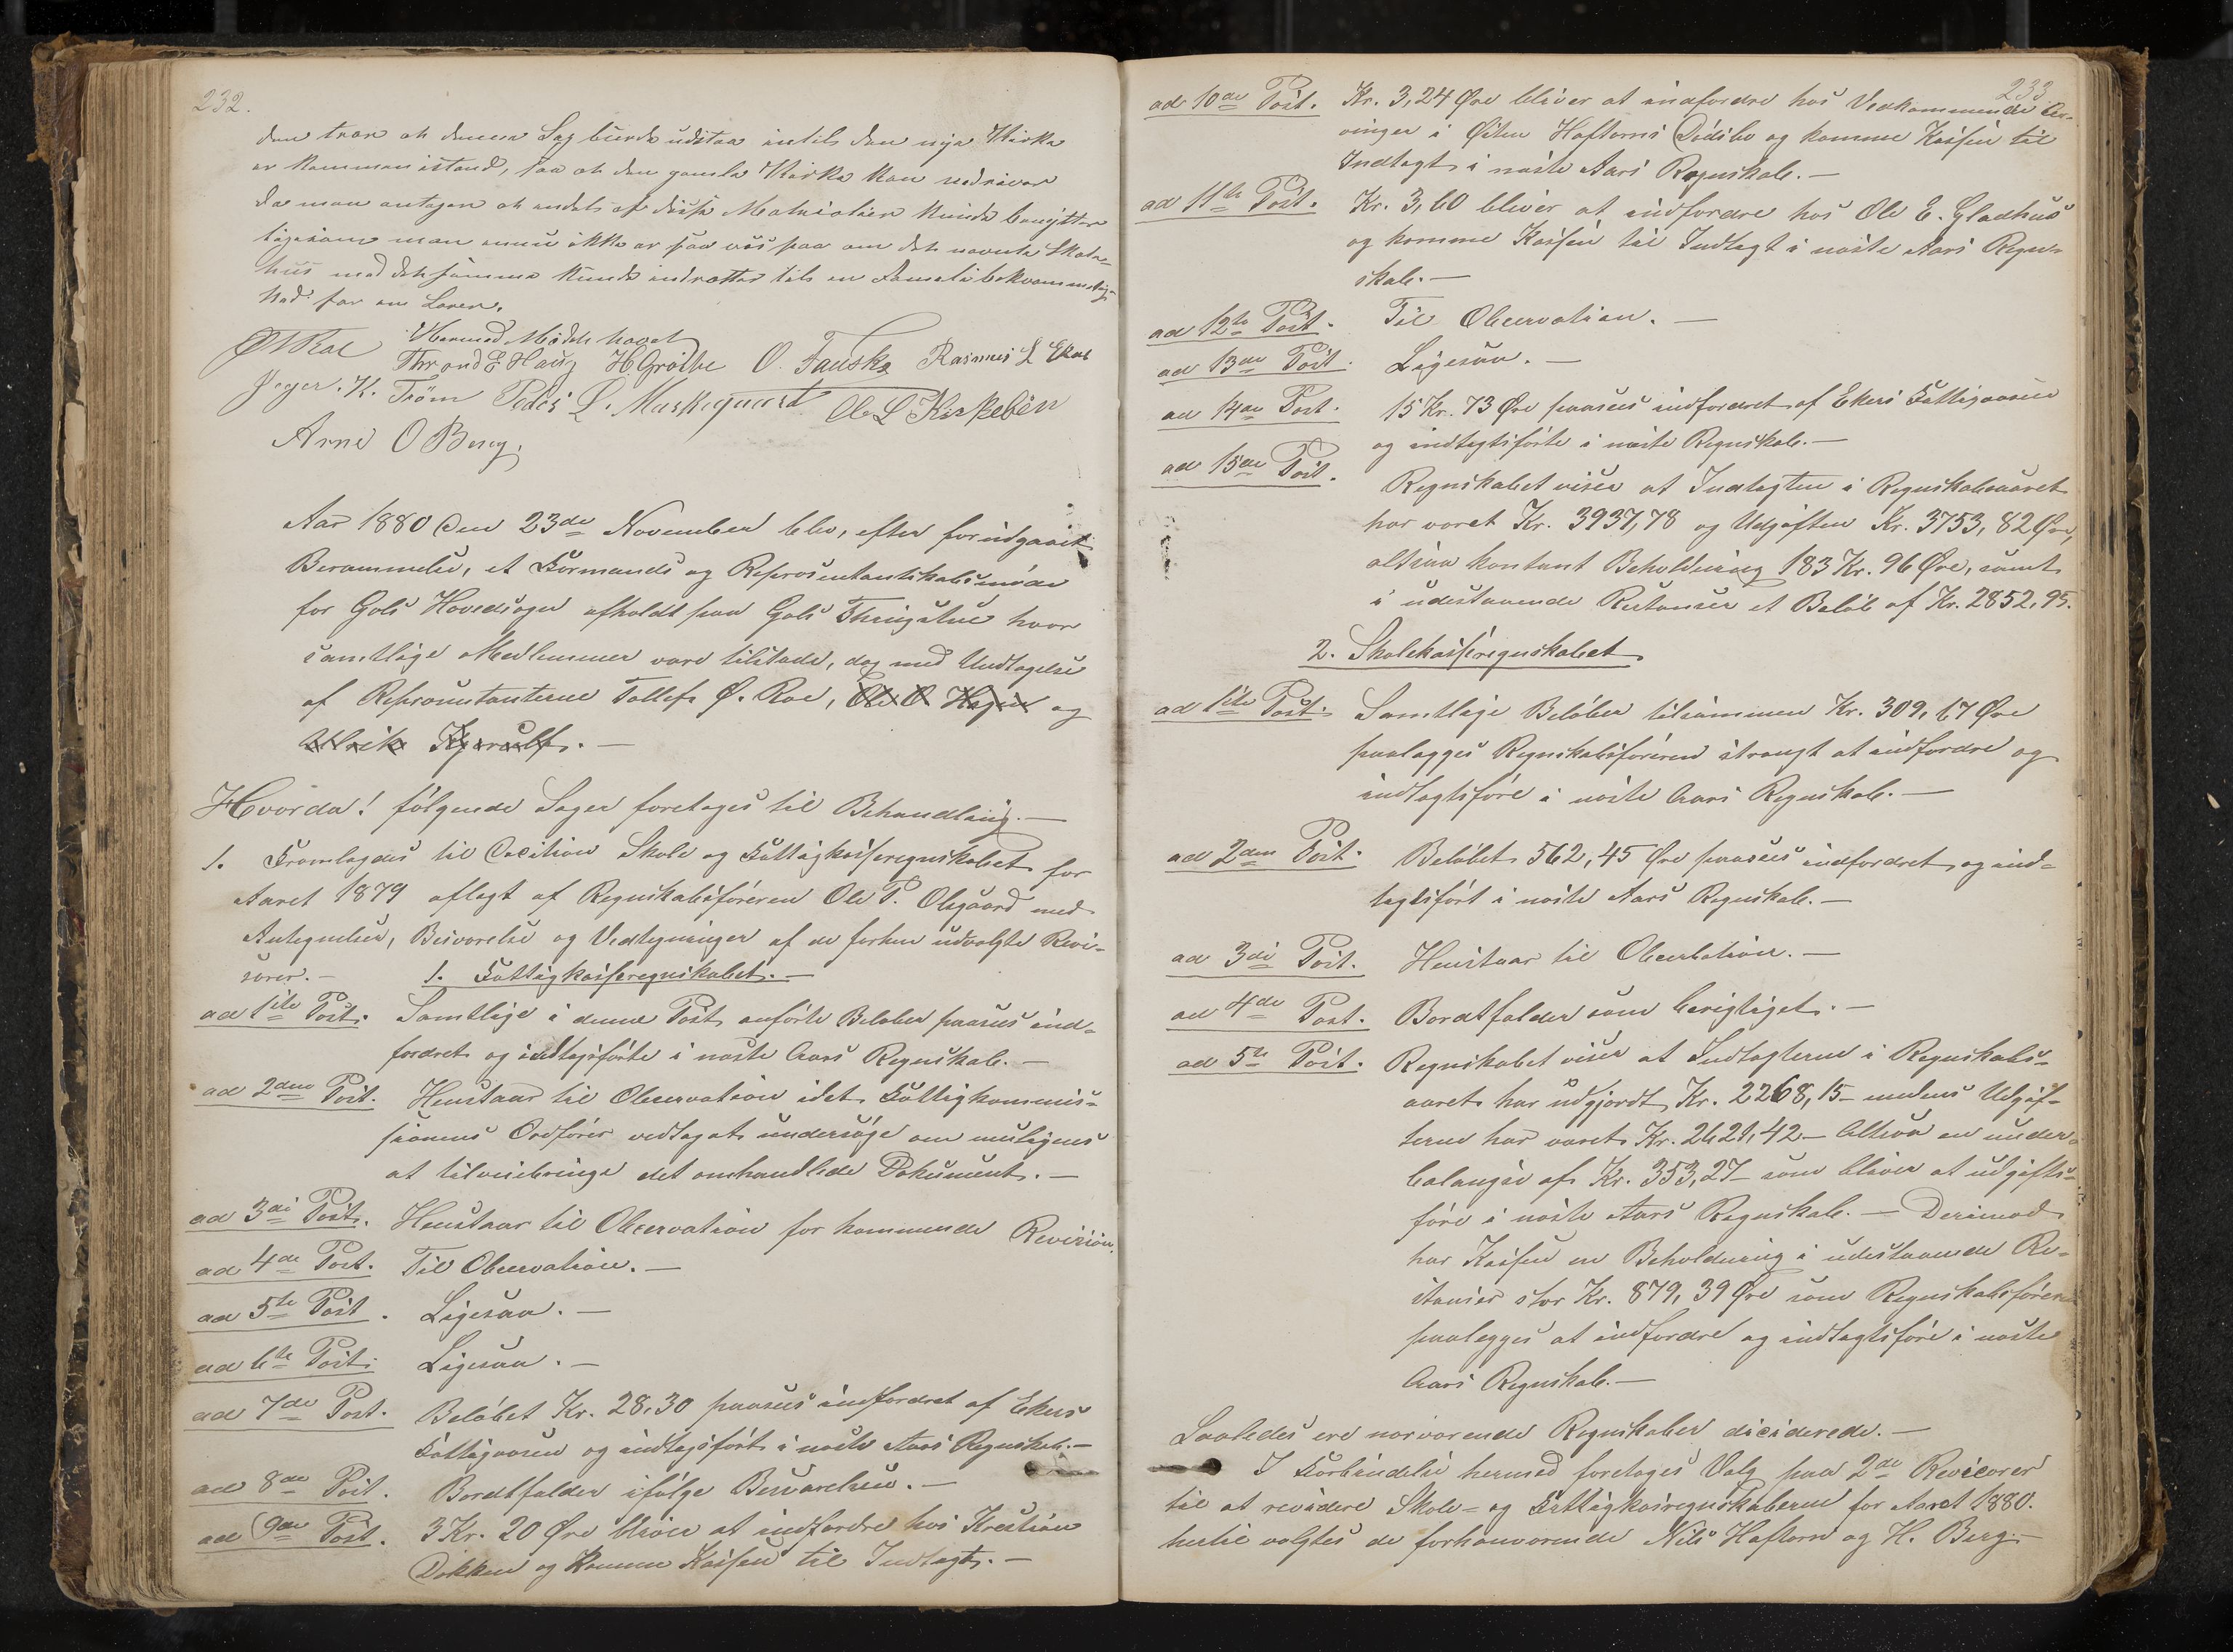 232.
den tror at denne Sag burde udstaa indtil den nye Kirke
er kommen istand, saa at den gamle Kirke kan nedrives
da man antager at endel af disse Materialier kunde benyttes
ligesom man ennu ikke er saa vis paa om det nævnte Skole-
hus med det samme kunde indrettes til en Familiebekvemmelig-
hed for en Lærer.
Hermed Mødet hævet
Thrond E Haug H Grøthe O. Fauske Rasmus L Ekre
K. Trøm Peder L. Markegaard Ole L Kirkebøn
Arne O Berg,
Aar 1880 den 23de November blev, efter foridgaaet
Berammelse, et Formands og Repræsentantskabsmøde
for Gols Hovedsogn afholdt paa Gols Thingstue hvor
samtlige Medlemmer vare tilstæde, dog med Undtagelse
af Repræsentanterne Tollef Ø. Roe, Ole O Hagen og
Ulrik Kjerulf. —
Hvorda! følgende Sager foretoges til Behandling. —
1. Fremlagdes til Decition Skole og Fattigkasseregnskabet for
Aaret 1879 aflagt af Regnskabsføreren Ole T. Olsgaard med
Antegnelser, Besvarelse og Vedtegninger af de forhen udvalgte Revi-
sorer. — 1. Fattigkasseregnskabet. —
ad 1ste Post. Samtlige i denne Post anførte Beløber paasees ind-
fordret og indtægtsførte i næste Aars Regnskab. —
ad 2den Post. Henstaar til Observation idet Fattigkommis-
sionens Ordfører vedtaget undersøge om muligens
at tilveiebringe det omhandlede Dokument. —
ad 3die Post. Henstaar til Observation for kommende Revision.
ad 4de Post. Til Observation. —
ad 5te Post. Ligesaa. —
ad 6te Post. Ligesaa. —
ad 7de Post. Beløbet Kr. 28,30 paasees indfordret af Ekers
Fattigvæsen og indtægtsført i næste Aars Regnskab. —
ad 8de Post. Bordtfalder ifølge Besvarelsen. —
ad 9de Post. 3 Kr. 20 Øre bliver at indfordre hos Kristian
Dokken og komme Kassen til Indtægt. —
233
ad 10de Post. Kr. 3,24 Øre bliver at indfordre hos Vedkommende Ar-
vinger i Østen Haftorns Dødsbo og komme Kassen til
Indtægt i næste Aars Regnskab. —
ad 11te Post. Kr. 3,60 bliver at indfordre hos Ole E. Gladhus
og komme Kassen til Indtægt i næste Aars Regn-
skab. —
ad 12te Post. Til Observation. —
ad 13de Post. Ligesaa. —
ad 14de Post. 15 Kr. 73 Øre paasees indfordret af Ekers Fattigvæsen
og indtægtsførte i næste Regnskab. —
ad 15de Post. Regnskabet viser at Indtægten i Regnskabsaaret
har været Kr. 3937,78 og Udgiften Kr. 3753,82 Øre,
altsaa kontant Beholdning 183 Kr. 96 Øre, samt
i udestaaende Restanser et Beløb af Kr. 2852,95.
2. Skolekasseregnskabet
ad 1ste Post. Samtlige Beløber tilsammen Kr. 309,67 Øre
paalægges Regnskabsføreren strængt at indfordre og
indtægtsføre i næste Aars Regnskab. —
ad 2den Post. Beløbet 562,45 Øre paasees indfordret og ind-
tægtsført i næste Aars Regnskab. —
ad 3die Post. Henstaar til Obserbation. —
ad 4de Post. Bordtfalder som berigtiget. —
ad 5te Post. Regnskabet viser at Indtægterne i Regnskabs-
aaret har udgjordt Kr. 2268,15 — medens Udgif-
terne har været Kr. 2621,42 — Altsaa en under-
balangse af Kr. 353,27 — som bliver at udgifts-
føre i næste Aars Regnskab. — Derimod
har Kassen en Beholdning i udestaaende Re-
stanser stor Kr. 879,39 Øre som Regnskabsføreren
paalægges at indfordre og indtægtsføre i næste
Aars Regnskab. —
Saaledes ere nærværende Regnskaber diciderede. —
I Forbindelse hermed foretoges Valg paa 2de Revisorer
til at revidere Skole- og Fattigkasregnskaberne for Aaret 1880.
hertil valgtes de forhenværende Nils Haftorn og H. Berg. —